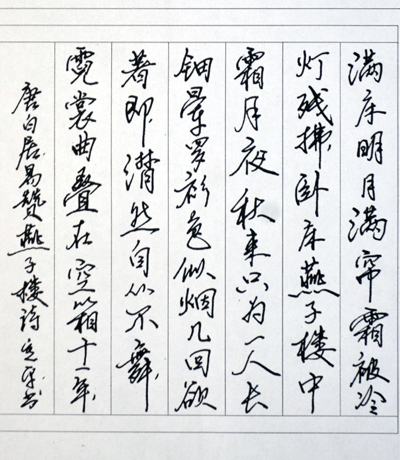 满床明月满帘霜被冷
灯残拂卧床燕子楼中
霜月夜秋来只为一人长
钿晕罗衫色似烟几回欲
著即潸然自从不舞
霓裳曲叠在空箱十一年
唐白居易赞燕子楼诗书